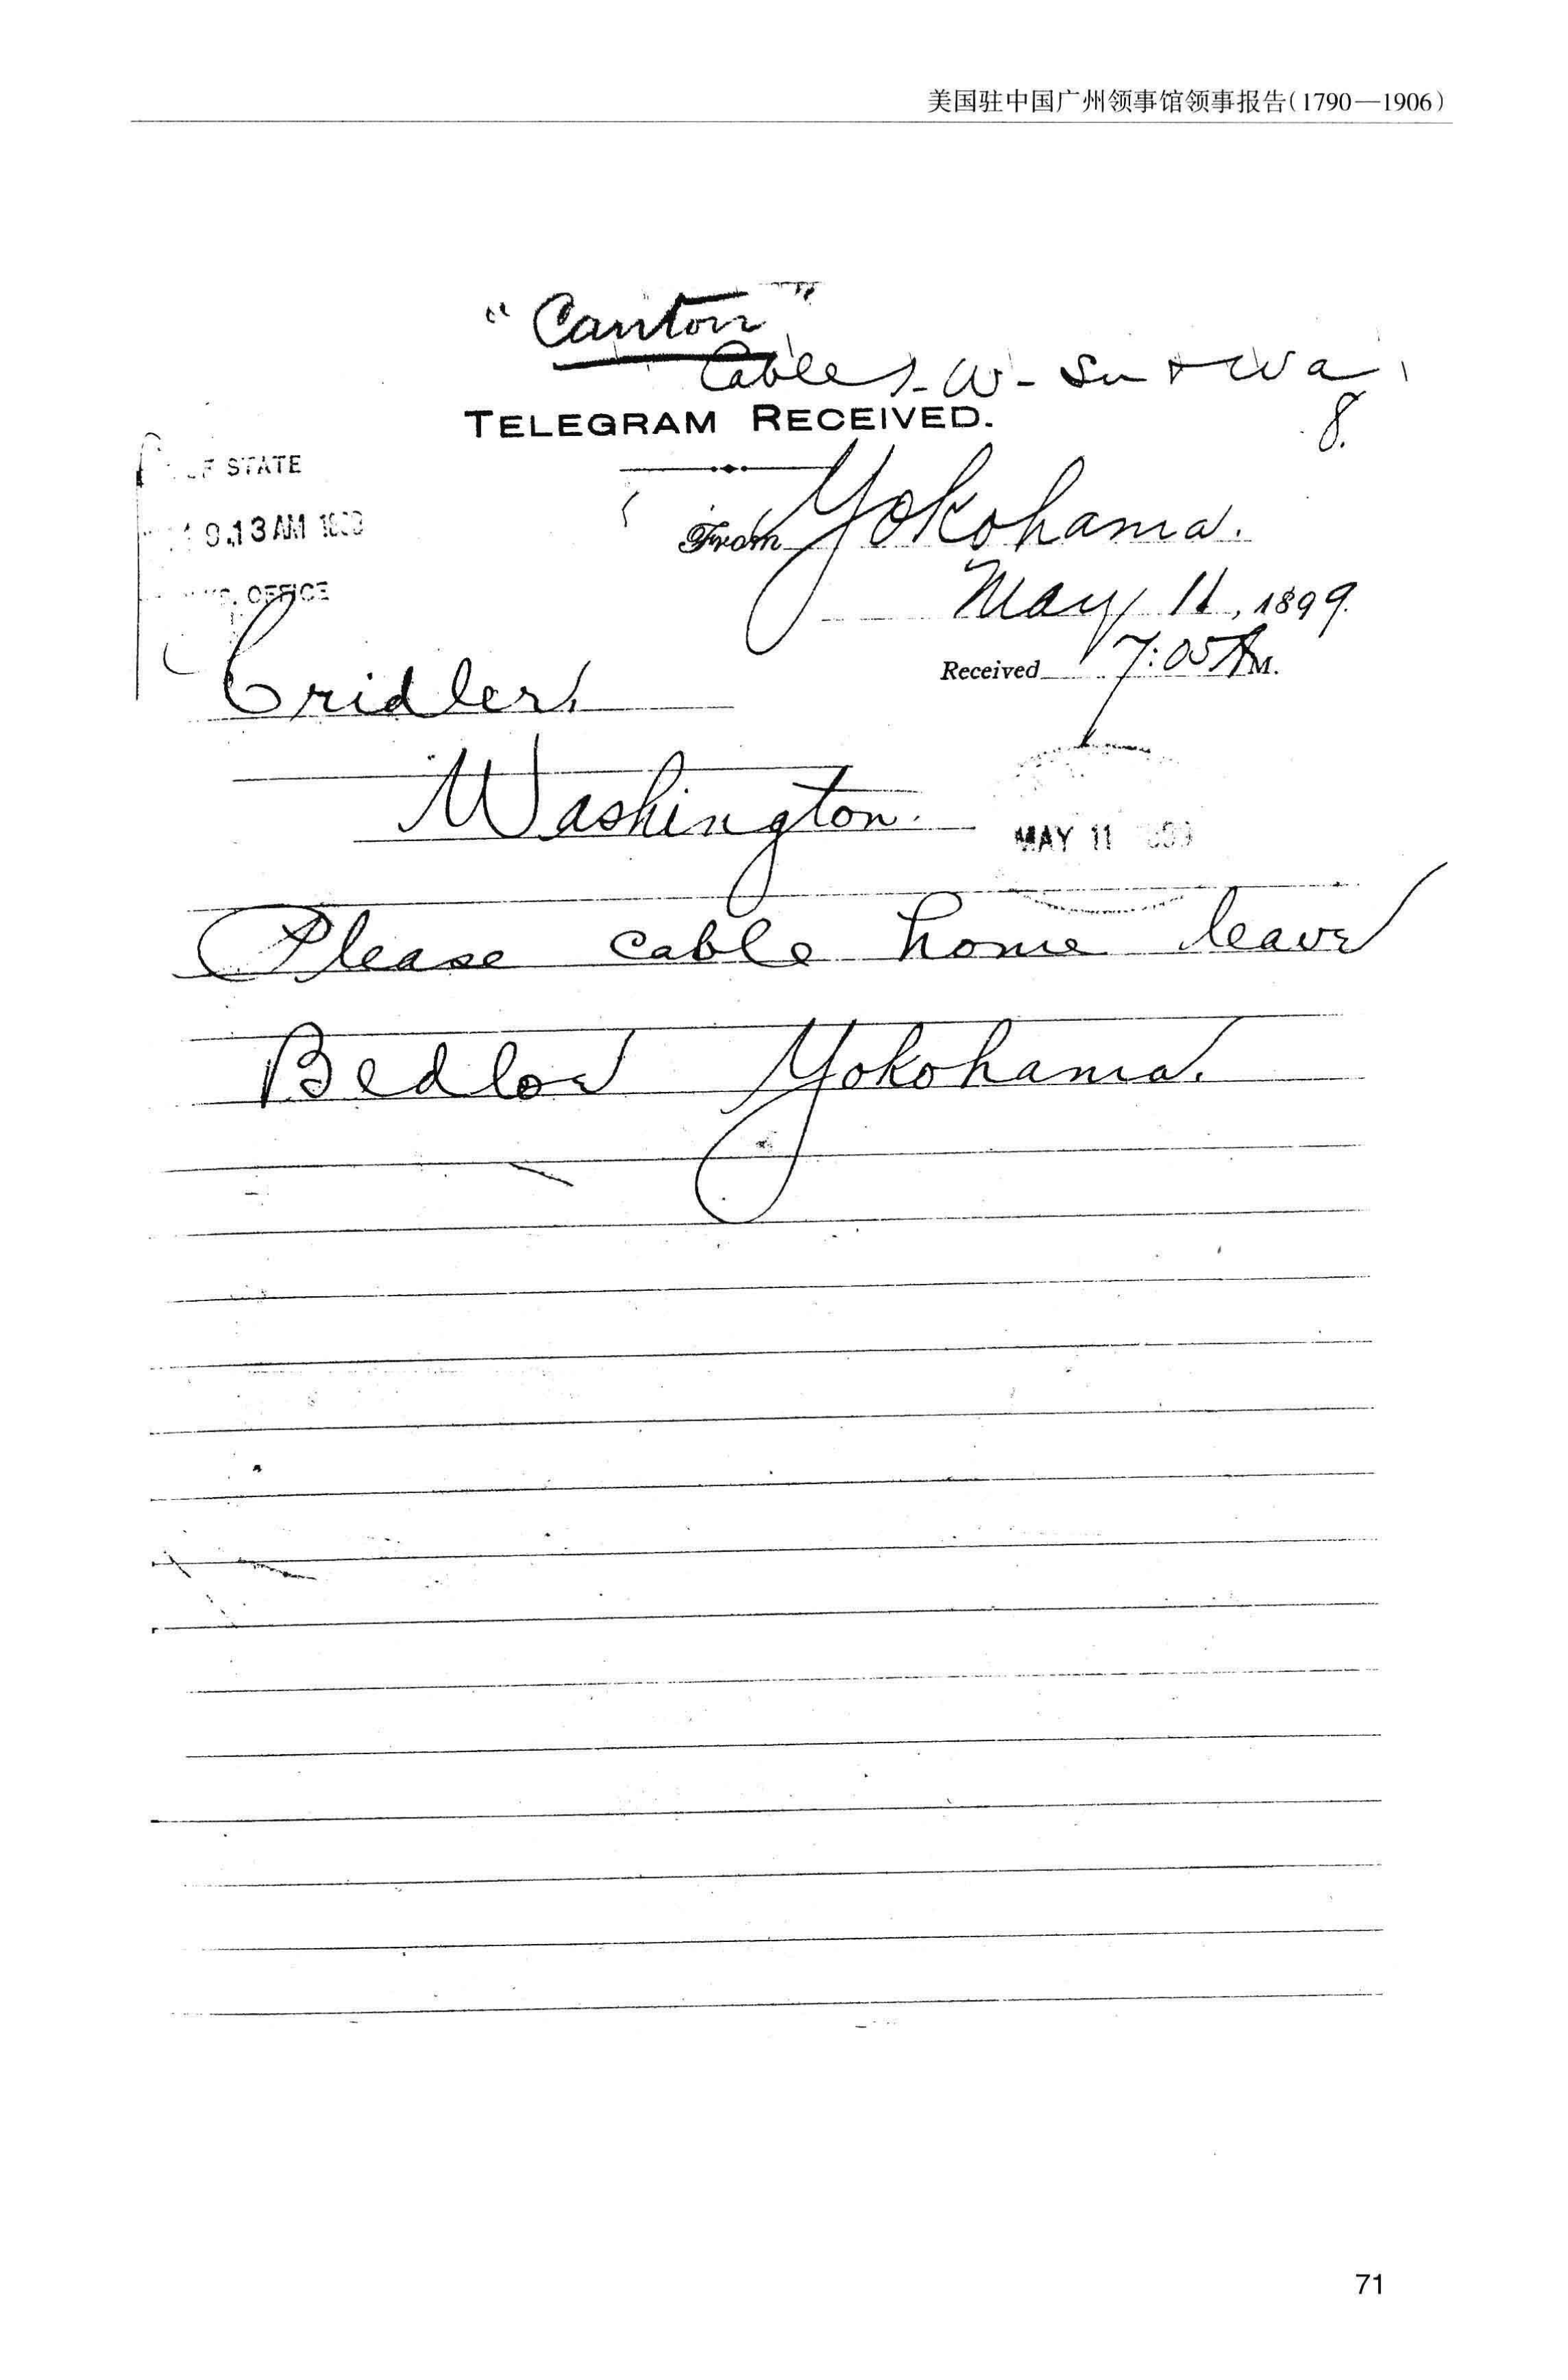 美国驻中国广州领事馆领事报告(1790—1906)
"Canton"
Cable
8.
TELEGRAM RECEIVED.
STATE
9.13 AM
OFFICE
From Yokohama.
May 11, 1899.
Received 7:05 A M.
Cridler,
Washington.
MAY 11
Please cable home leave
Bedloe Yokohama.
71